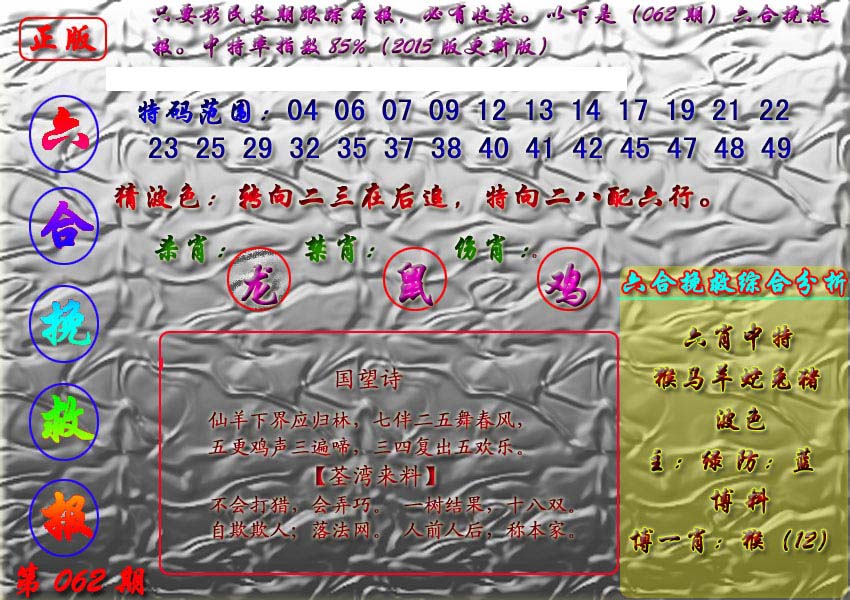 正版
只要彩民长期跟踪本报，必有收获。以下是（062期）六合挽救
报。中特率指数85%（2015版更新版）
六合挽救报
第062期
特码范围：04 06 07 09 12 13 14 17 19 21 22
23 25 29 32 35 37 38 40 41 42 45 47 48 49
猜波色：转向二三在后追，特向二八配六行。
杀肖：龙 禁肖：鼠 伤肖：鸡
国望诗
仙羊下界应归林，七伴二五舞春风，
五更鸡声三遍啼，三四复出五欢乐。
【荃湾来料】
不会打猎，会弄巧。 一树结果，十八双。
自欺欺人；落法网。 人前人后，称本家。
六合挽救综合分析
六肖中特
猴马羊蛇兔猪
波色
主：绿防：蓝
博料
博一肖：猴（12）